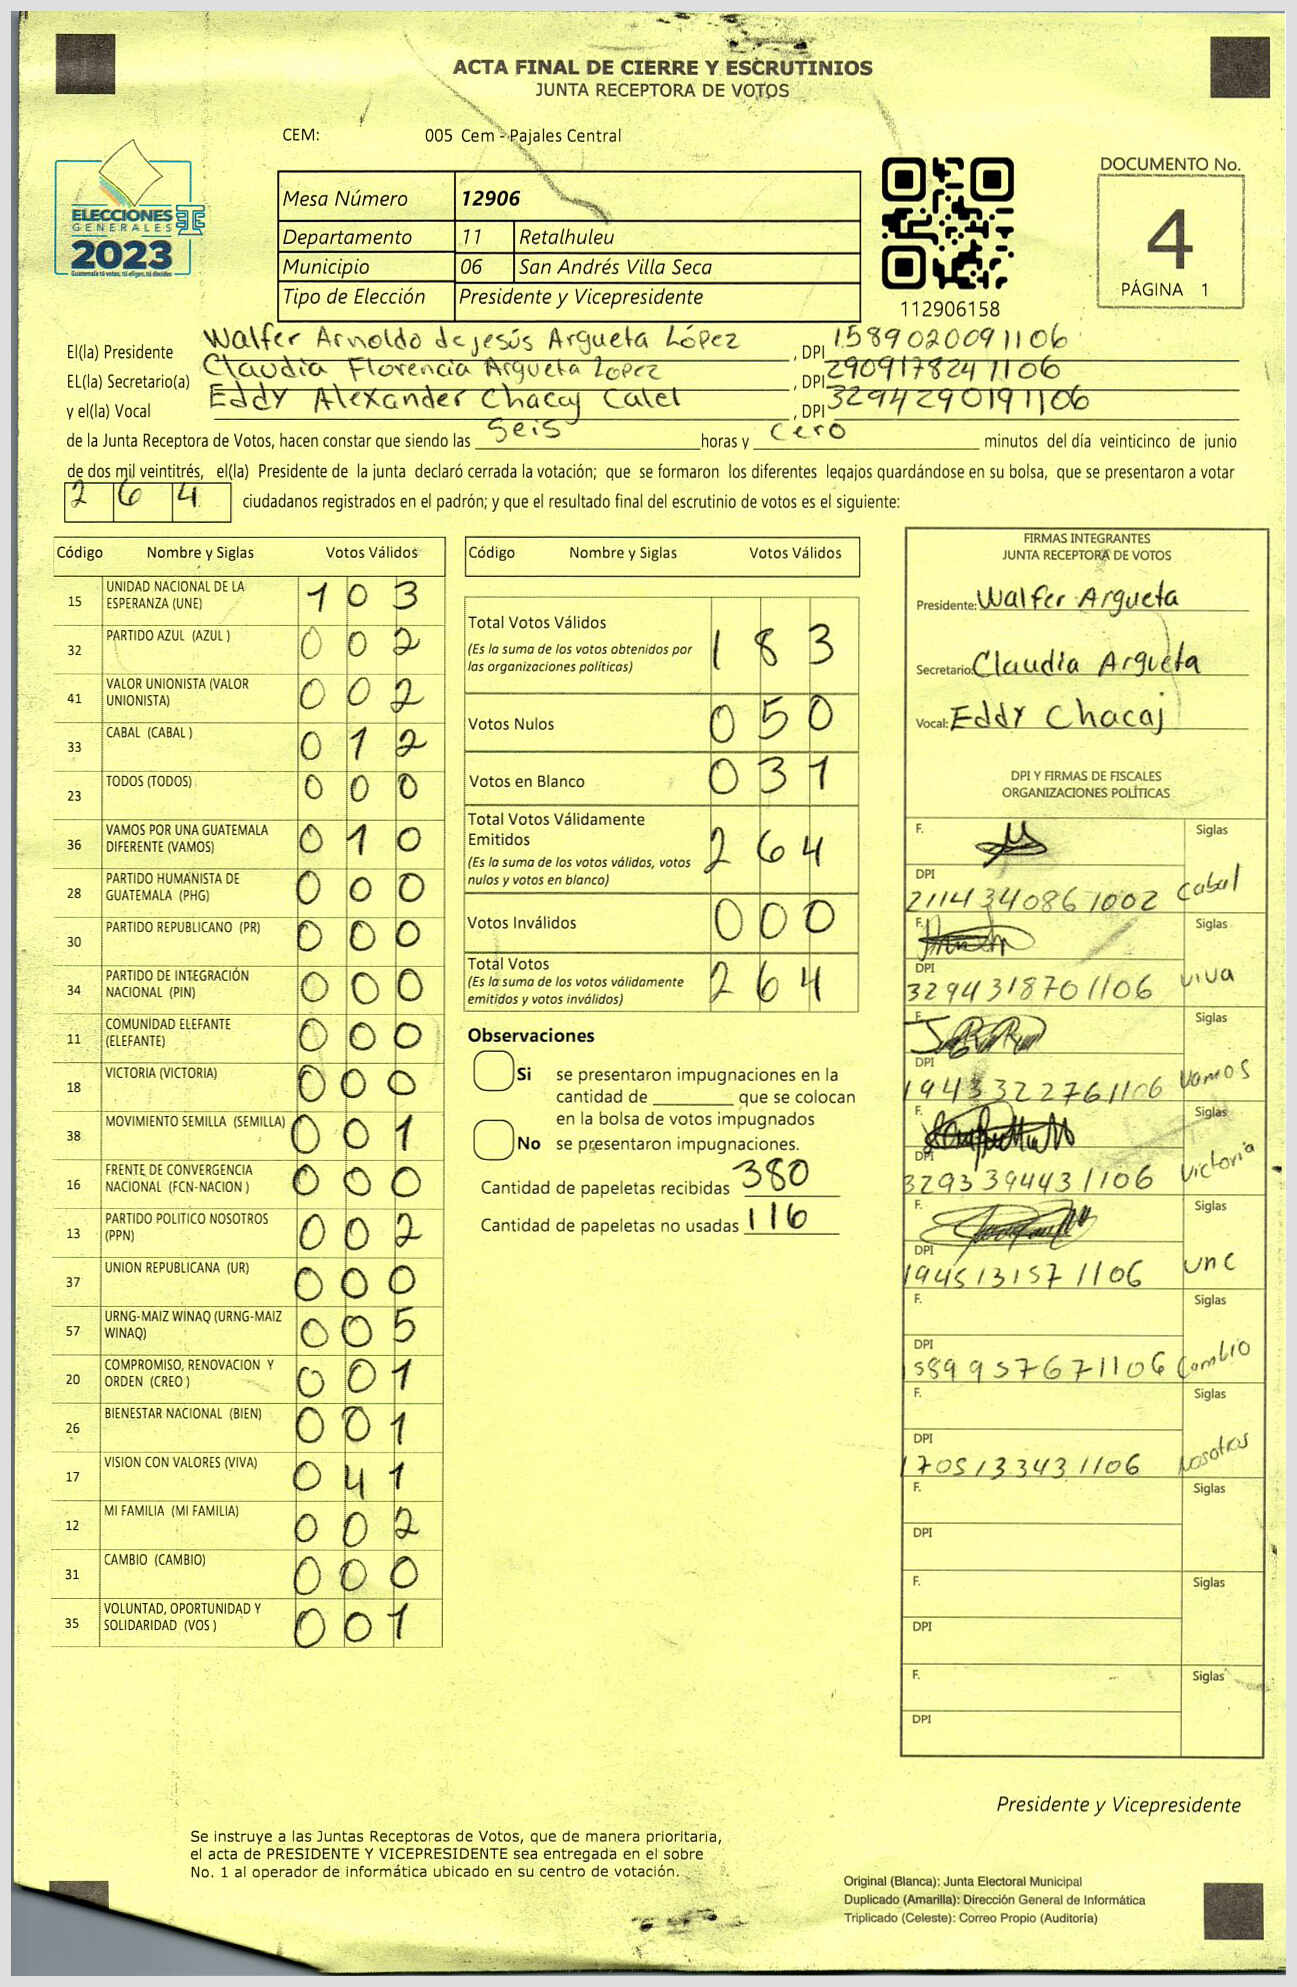 ACTA FINAL DE CIERRE Y ESCRUTINIOS
JUNTA RECEPTORA DE VOTOS
CEM: 005 Cem - Pajales Central
ELECCIONES
GENERALES
2023
Guatemala tú votas, tú eliges, tú decides
Mesa Número 12906
Departamento 11 Retalhuleu
Municipio 06 San Andrés Villa Seca
Tipo de Elección Presidente y Vicepresidente
112906158
DOCUMENTO No.
4
PÁGINA 1
El(la) Presidente Walfer Arnoldo de jesús Argueta López, DPI 1589020091106
EL(la) Secretario(a) Claudia Florencia Argueta Lopez, DPI 2909178241106
y el(la) Vocal Eddy Alexander Chacaj Calel, DPI 3294290191106
de la Junta Receptora de Votos, hacen constar que siendo las Seis horas y cero minutos del día veinticinco de junio
de dos mil veintitrés, el(la) Presidente de la junta declaró cerrada la votación; que se formaron los diferentes legajos guardándose en su bolsa, que se presentaron a votar
2 6 4 ciudadanos registrados en el padrón; y que el resultado final del escrutinio de votos es el siguiente:
Código Nombre y Siglas Votos Válidos
15 UNIDAD NACIONAL DE LA ESPERANZA (UNE) 1 0 3
32 PARTIDO AZUL (AZUL ) 0 0 2
41 VALOR UNIONISTA (VALOR UNIONISTA) 0 0 2
33 CABAL (CABAL ) 0 1 2
23 TODOS (TODOS) 0 0 0
36 VAMOS POR UNA GUATEMALA DIFERENTE (VAMOS) 0 1 0
28 PARTIDO HUMANISTA DE GUATEMALA (PHG) 0 0 0
30 PARTIDO REPUBLICANO (PR) 0 0 0
34 PARTIDO DE INTEGRACIÓN NACIONAL (PIN) 0 0 0
11 COMUNIDAD ELEFANTE (ELEFANTE) 0 0 0
18 VICTORIA (VICTORIA) 0 0 0
38 MOVIMIENTO SEMILLA (SEMILLA) 0 0 1
16 FRENTE DE CONVERGENCIA NACIONAL (FCN-NACION ) 0 0 0
13 PARTIDO POLITICO NOSOTROS (PPN) 0 0 2
37 UNION REPUBLICANA (UR) 0 0 0
57 URNG-MAIZ WINAQ (URNG-MAIZ WINAQ) 0 0 5
20 COMPROMISO, RENOVACION Y ORDEN (CREO ) 0 0 1
26 BIENESTAR NACIONAL (BIEN) 0 0 1
17 VISION CON VALORES (VIVA) 0 4 1
12 MI FAMILIA (MI FAMILIA) 0 0 2
31 CAMBIO (CAMBIO) 0 0 0
35 VOLUNTAD, OPORTUNIDAD Y SOLIDARIDAD (VOS ) 0 0 1
Código Nombre y Siglas Votos Válidos
Total Votos Válidos 1 8 3
(Es la suma de los votos obtenidos por
las organizaciones políticas)
Votos Nulos 0 5 0
Votos en Blanco 0 3 1
Total Votos Válidamente
Emitidos 2 6 4
(Es la suma de los votos válidos, votos
nulos y votos en blanco)
Votos Inválidos 0 0 0
Total Votos 2 6 4
(Es la suma de los votos válidamente
emitidos y votos inválidos)
Observaciones
Si se presentaron impugnaciones en la
cantidad de ________ que se colocan
en la bolsa de votos impugnados
No se presentaron impugnaciones.
Cantidad de papeletas recibidas 380
Cantidad de papeletas no usadas 116
FIRMAS INTEGRANTES
JUNTA RECEPTORA DE VOTOS
Presidente: Walfer Argueta
Secretario: Claudia Argueta
Vocal: Eddy Chacaj
DPI Y FIRMAS DE FISCALES
ORGANIZACIONES POLÍTICAS
F. Siglas
DPI
2114340861002 Cabal
F. Siglas
DPI
3294318701106 viva
F. Siglas
DPI
1943322761106 Vamos
F. Siglas
DPI
3293394431106 Victoria
F. Siglas
DPI
1945131571106 unc
F. Siglas
DPI
1589957671106 Cambio
F. Siglas
DPI
1705133431106 Nosotros
F. Siglas
DPI
F. Siglas
DPI
F. Siglas
DPI
Presidente y Vicepresidente
Se instruye a las Juntas Receptoras de Votos, que de manera prioritaria,
el acta de PRESIDENTE Y VICEPRESIDENTE sea entregada en el sobre
No. 1 al operador de informática ubicado en su centro de votación.
Original (Blanca): Junta Electoral Municipal
Duplicado (Amarilla): Dirección General de Informática
Triplicado (Celeste): Correo Propio (Auditoría)